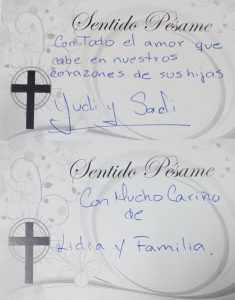 Sentido Pésame
Con Todo el amor que
cabe en nuestros
corazones de sus hijas
Yudi y Sadi
Sentido Pésame
Con Mucho Cariño
de
Lidia y Familia.